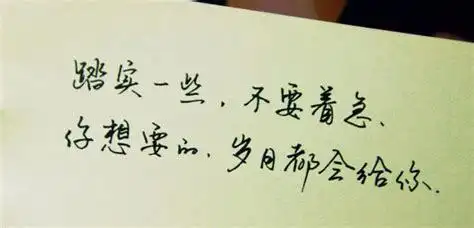 踏实一些，不要着急、
你想要的、岁月都会给你.